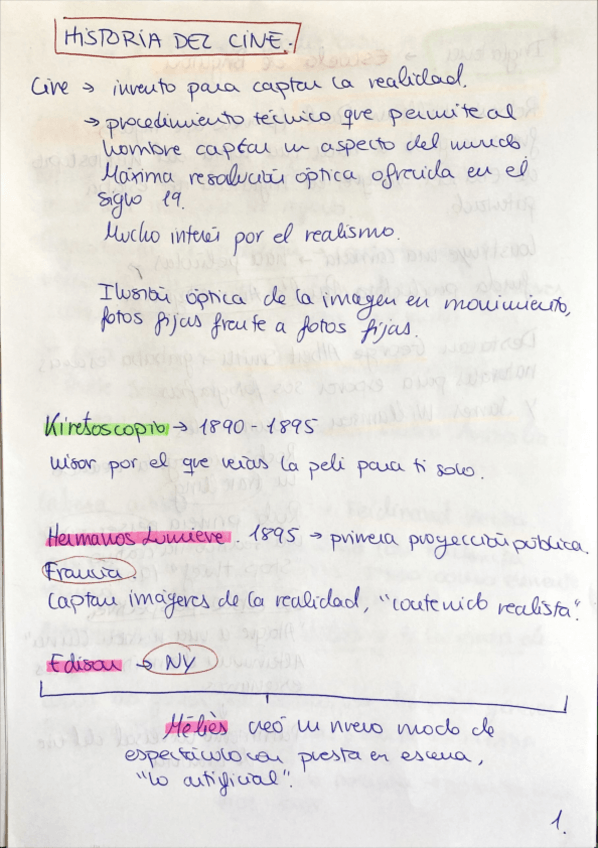 HISTORIA DEL CINE.
Cine → invento para captar la realidad.
→ procedimiento técnico que permite al
hombre captar un aspecto del mundo
Máxima resolución óptica ofrecida en el
siglo 19.
Mucho interés por el realismo.
Ilusión óptica de la imagen en movimiento,
fotos fijas frente a fotos fijas.
Kinetoscopio → 1890 - 1895
visor por el que veías la peli para ti solo.
Hermanos Lumiere. 1895 → primera proyección pública.
Francia.
Captan imágenes de la realidad, "contenido realista".
Edison → NY
Méliès creó un nuevo modo de
espectáculo con puesta en escena,
"lo artificial".
1.